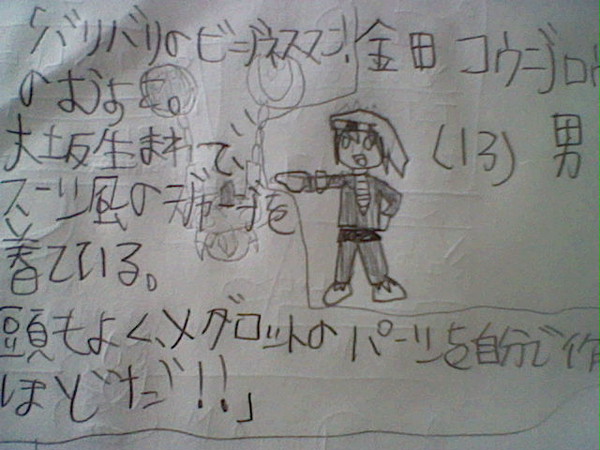 「バリバリのビジネスマン!金田 コウジロウ
のむすこ。
(13) 男
大坂生まれで、
スーツ風のジャージを
着ている。
頭もよく、メダロットのパーツを自分で作
ほどだ!!」